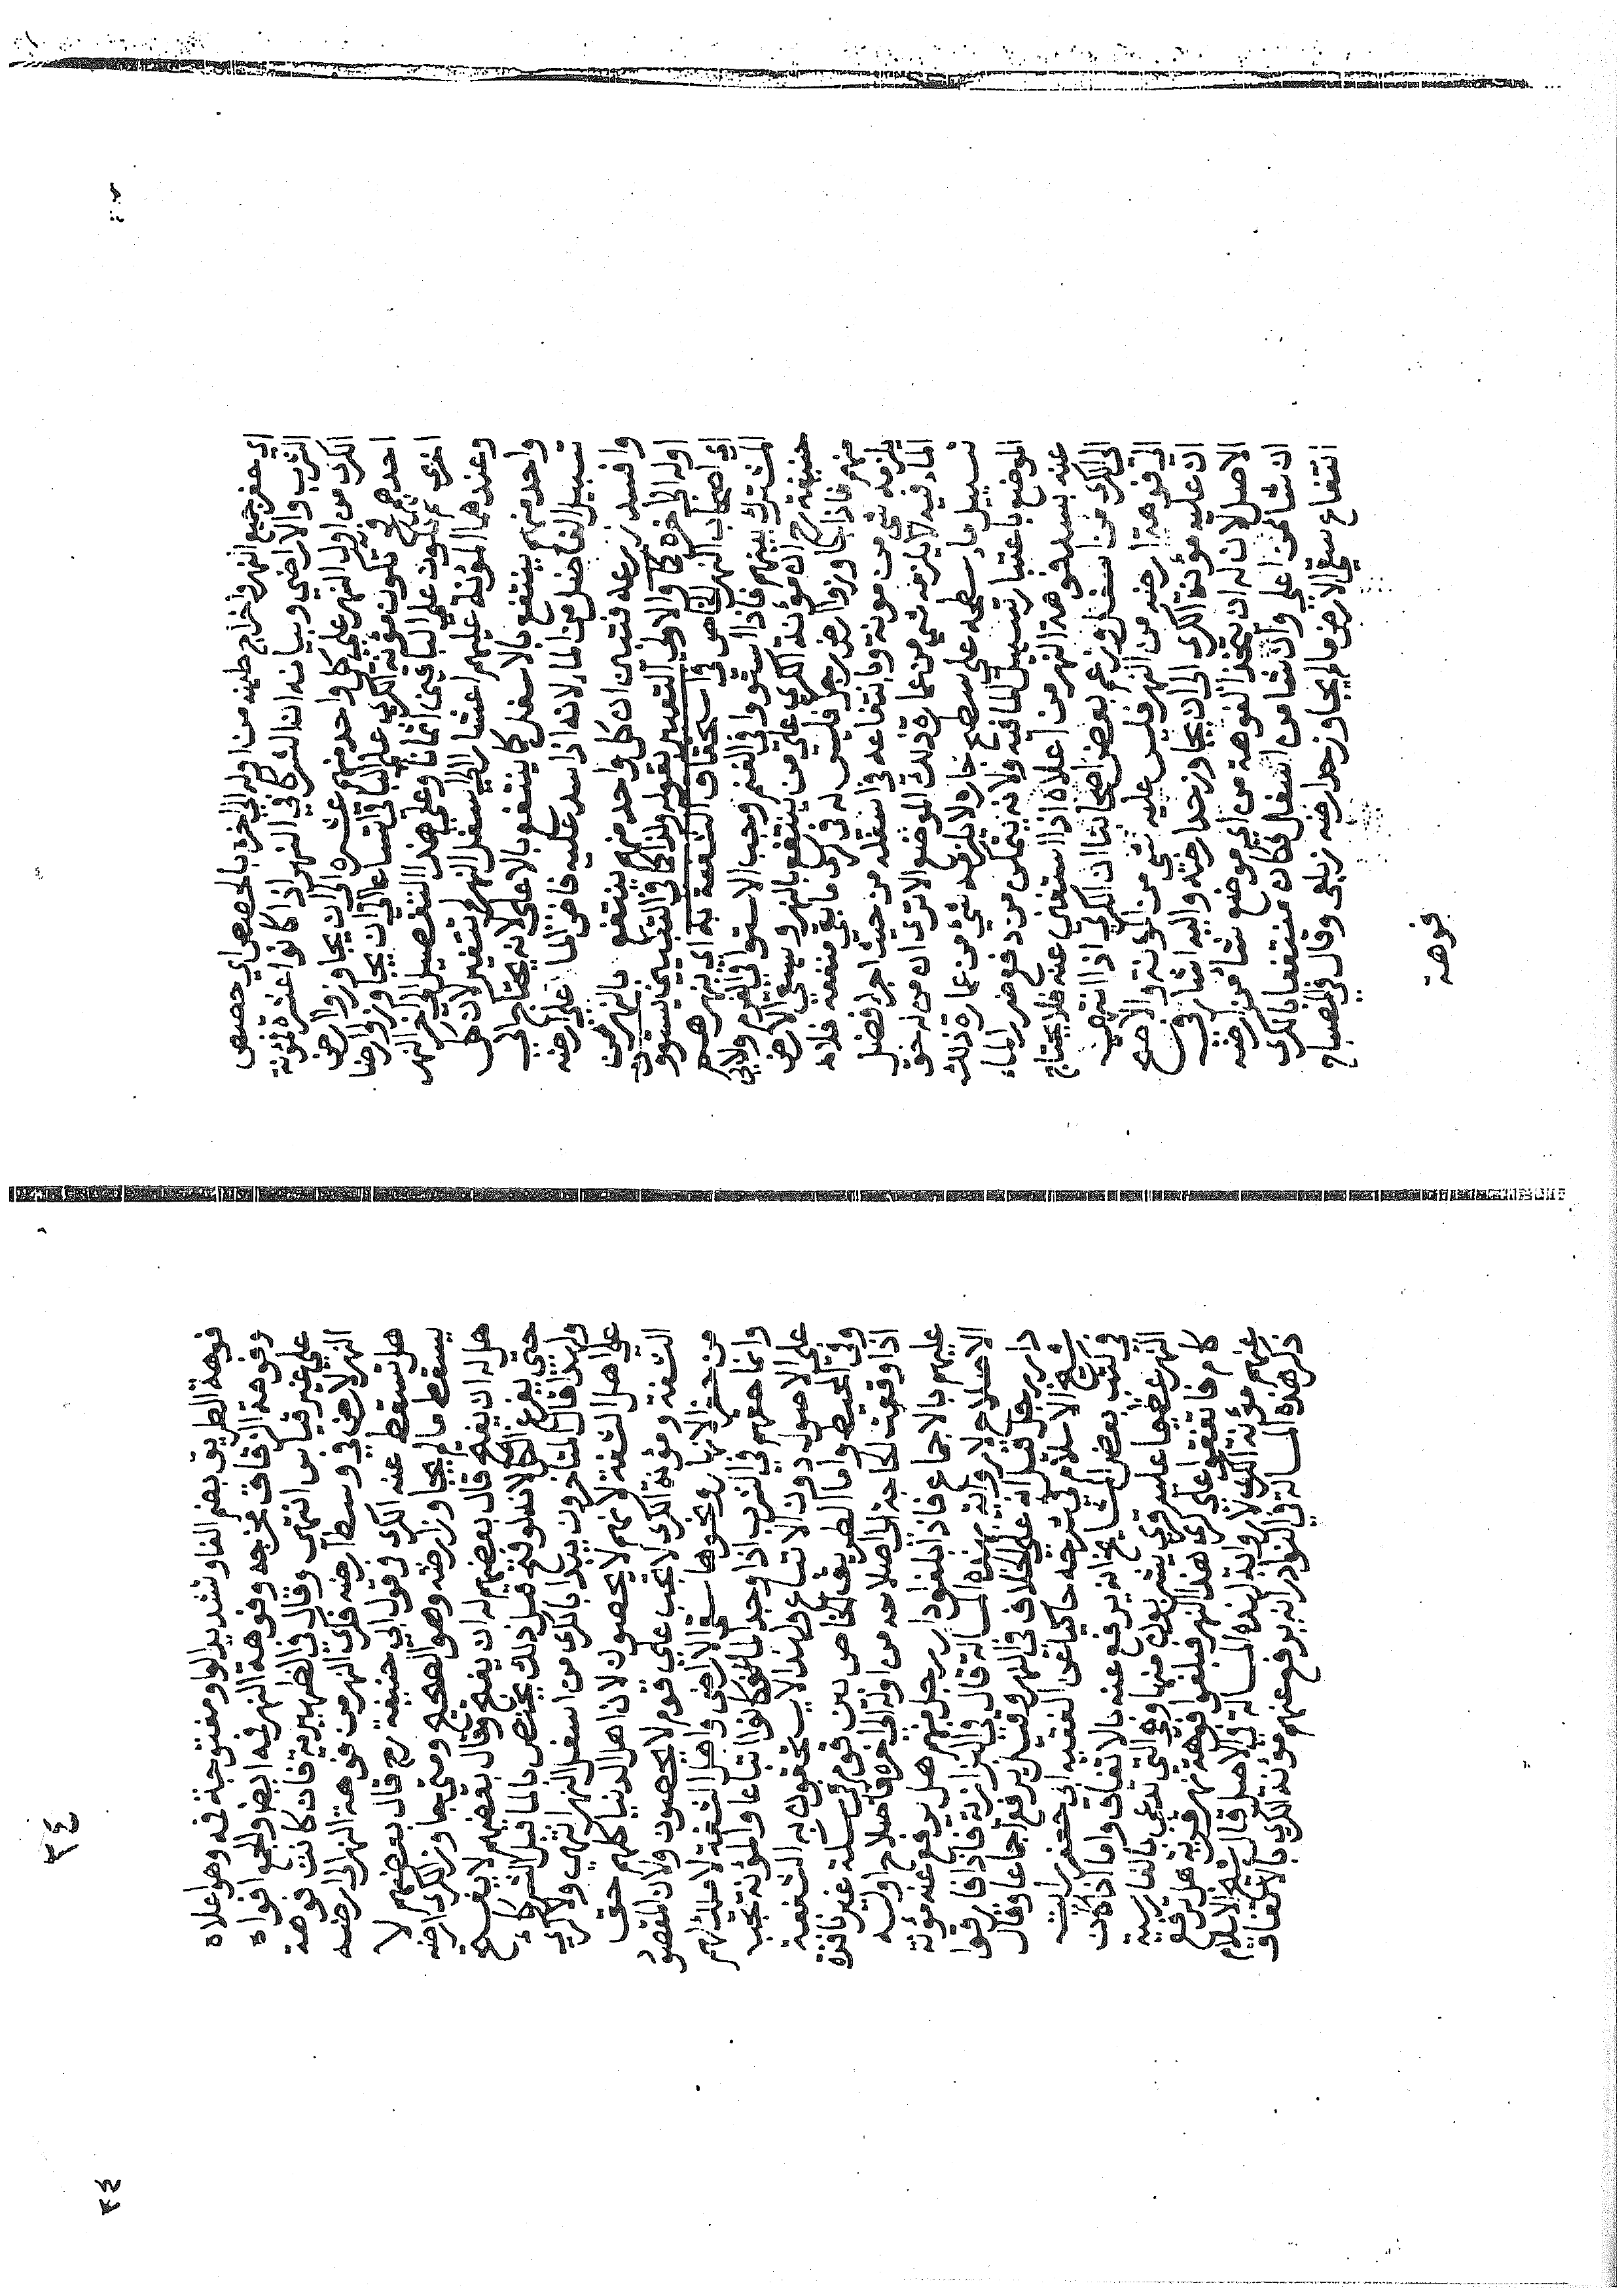 اي حفر جميع النهر واخراج طينه من اوله الي اخره بالحصص اي حصص
الشرب والاراضي وبيانه ان الشركا في النهر اذا كانوا عشرة فمؤنة
الكري من اول النهر علي كل واحد منهم عشرة الي ان يجاوزوا ارض
احدهم ثم تكون مؤنة الكري علي الباقي اتساعا الي ان يجاوزوا ارضا
اخري ثم تكون علي الباقين اثمانا وعلي هذا التفصيل الي اخر النهر
وعندهما المؤنة عليهم اعشارا الي اسفل النهر لان كل
واحد منهم ينتفع بالاسفل كما ينتفع بالاعلي لانه يحتاج الي
تسييل الفاضل من الماء لانه اذا سد عليه فاض الماء علي ارضه
وافسد زرعه فتبين ان كل واحد منهم ينتفع بالنهر من
اوله الي اخره كما والاولي التعبير بقوله ولذا كما في التبيين يستوون
اي اصحاب النهر الخاص في استحقاق الشفعة به اي بنهرهم
المشترك بينهم فاذا استووا في الغنم وجب الاستوا في الغرم ولابي
حنيفة رح ان مؤنة الكري علي من ينتفع بالنهر وسقي الارض
منهم فاذا جاوزوا ارض رجل فليس له في كري ما بقي منفعة فلا
يلزمه شي من مونة وبانتفاعه في اسفله من حيث اجراء فضل
الماء فيه لا يلزمه شي من عمارة ذلك الموضع الا تري ان من له حق
تسييل ماء سطحه علي سطح جاره لا يلزمه شي من عمارة ذلك
الموضع باعتبار تسييل الماء فيه ولانه يتمكن من دفع ضرر الماء
عنه بسد فوهة النهر من اعلاه اذا استغني عنه فلا يحتاج
الي الكري من اسفل وزعم بعض اصحابنا ان الكري اذا انتهي
الي فوهة ارضه من النهر فليس عليه شي من المؤنة والاصح
ان عليه مؤنة الكري الي ان يجاوز حد ارضه واليه اشار في
الاصل لان له ان يتخذ الفوهة من اي موضع شا من ارضه
ان شا من اعلي وان شا من اسفل فكان منتفعا بالكري
انتفاع سقي الارض ما لم يجاوز حد ارضه زيلعي وقال في المصباح
فوهة
٣٤
فوهة الطريق بضم الفا وشد يد الواو مفتوحة فمه وهو اعلاه
وفوهة الزقاق مخرجه وفوهة النهر فمه ايضا والجمع افواه
علي غير قياس انتهي وقال في الظهيرية فان كانت فوهة
النهر لارض في وسط ارضه فكري النهر من فوهة النهر الي ارضه
هل تسقط عنه الكري في قول ابي حنيفة رح قال بعضهم لا
يسقط ما لم يجاوز ارضه وهو الصحيح ومتي جاوز الكري ارضه
هل له ان يفتح قال بعضهم له ان يفتح وقال بعضهم لا يفتح
حتي يفرغ الكل لانه لو فتح قبل ذلك يختص بالماء قبل الشركاء
ولهذا قال المتاخرون يبدا بالكري من اسفل النهر انتهي ولا كري
علي اهل الشفة لانهم لا يحصون لان اهل الدنيا كلهم حق
الشفة ومؤنة الكري لا تجب علي قوم لا يحصون ولان المقصود
من حفر الانهار ونحوها سقي الاراضي واهل الشفة لا ملك لهم
وانما حقهم في الشرب اذا وجد الماء فكانوا اتباعا والمؤنة تجب
علي الاصول دون الاتباع ولهذا لا يستحقون به الشفعة
وفي المحيط واما الطريق الخاص بين قوم في سكة غير نافذة
اذا وقعت الحاجة الي اصلاحه من اوله الي اخره فاصلاح اوله
عليهم بالاجماع فاذا بلغوا دار رجل منهم هل يرفع عنه مؤنة
الاصلاح لا رواية بهذه المسالة قال في البزازية فاذا فارقوا
دار رجل قيل انه علي الخلاف في النهر وقيل يرفع اجماعا وقال
شيخ الاسلام في شرحه حاكيا عن الفقيه ابي جعفر رايت
في كتب بعض المشايخ انه يرفع عنه بالاتفاق واما اذا كان
النهر عظيما عليه قري يشربون منها وهي التي تدعي بالفارسية
كام فاتفقوا علي كري هذا النهر فبلغوا فوهة نهر قرية هل يرفع
عنهم مؤنة الكري لا رواية لهذه المسالة في الاصل قال شيخ الاسلام
ذكر هذه المسالة في النوادر انه يرفع عنهم مؤنة الكري بالاتفاق